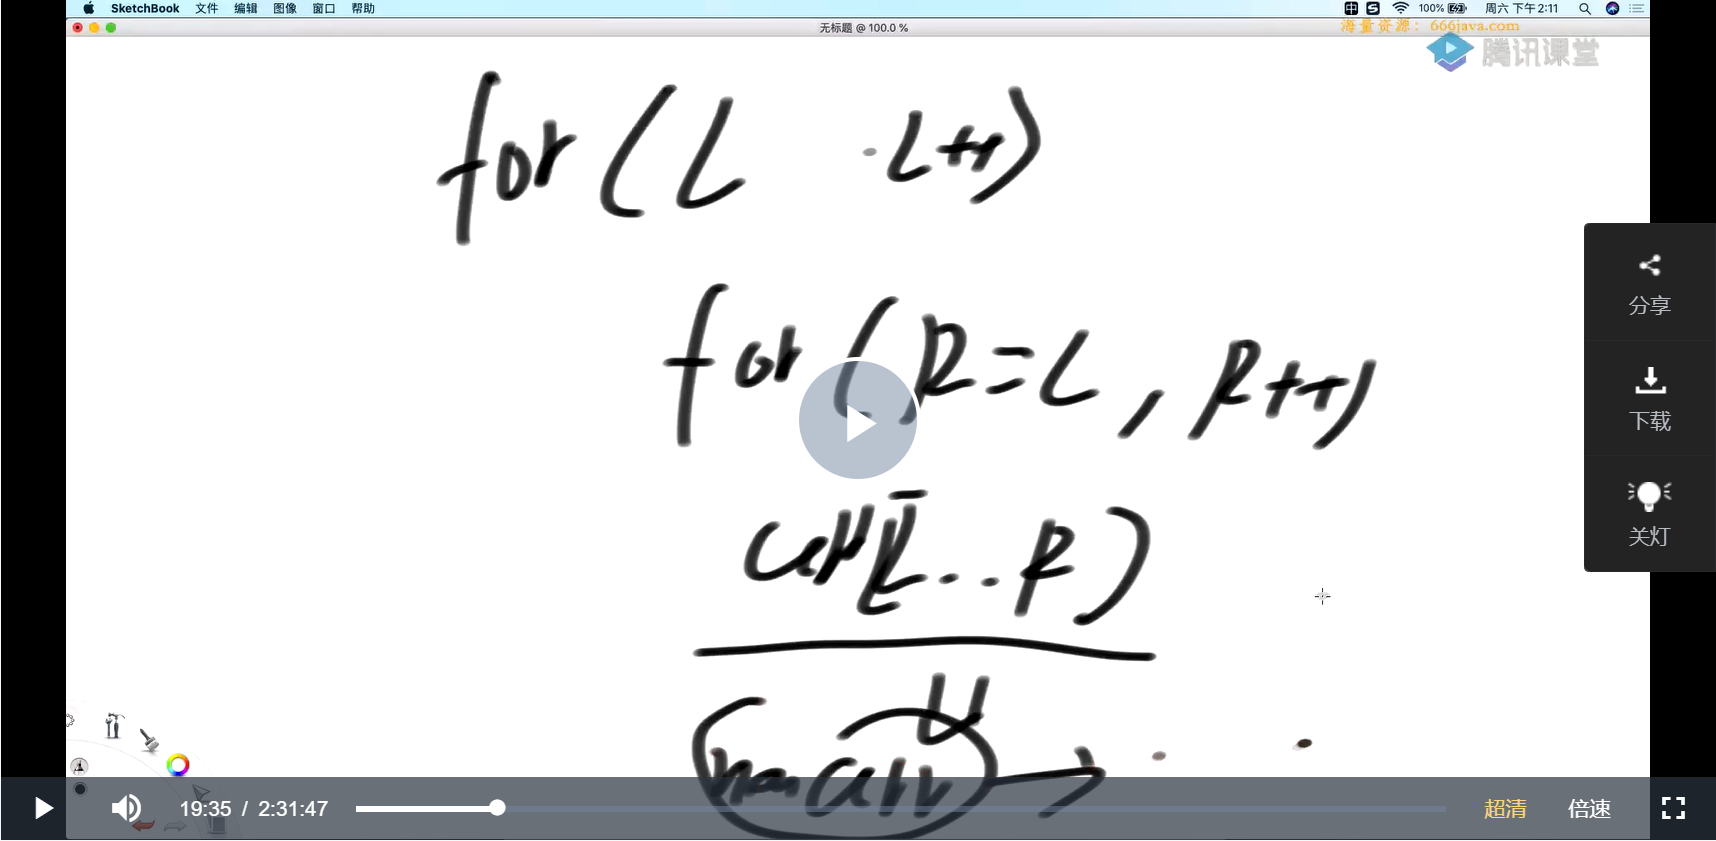 SketchBook 文件 编辑 图像 窗口 帮助 100% 周六 下午2:11
无标题 @ 100.0 %
海量资源：666java.com
腾讯课堂
for ( L L++)
for ( R=L , R++)
arr[L..R]
分享
下载
关灯
19:35 / 2:31:47 超清 倍速